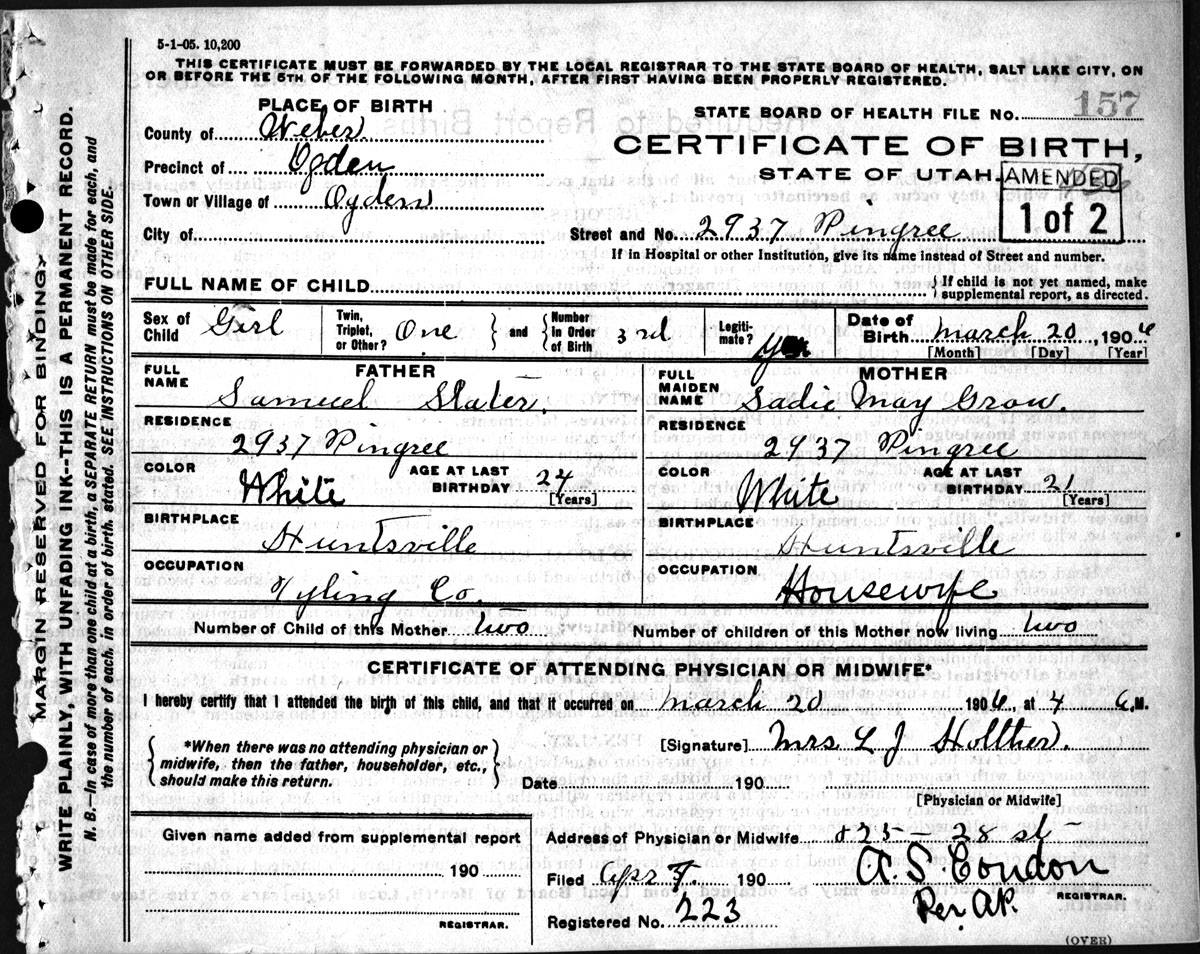 5-1-05. 10,200
THIS CERTIFICATE MUST BE FORWARDED BY THE LOCAL REGISTRAR TO THE STATE BOARD OF HEALTH, SALT LAKE CITY, ON
OR BEFORE THE 5TH OF THE FOLLOWING MONTH, AFTER FIRST HAVING BEEN PROPERLY REGISTERED.
PLACE OF BIRTH
STATE BOARD OF HEALTH FILE NO. 157
County of Weber
CERTIFICATE OF BIRTH,
Precinct of Ogden
STATE OF UTAH.
AMENDED
1 of 2
Town or Village of Ogden
City of
Street and No. 2937 Pingree
If in Hospital or other Institution, give its name instead of Street and number.
FULL NAME OF CHILD
If child is not yet named, make
supplemental report, as directed.
Sex of Child Girl
Twin, Triplet, or Other? One
and
Number in Order of Birth 3rd
Legiti-mate? Yes
Date of Birth March 20, 1906
[Month] [Day] [Year]
FATHER
FULL NAME Samuel Slater.
RESIDENCE 2937 Pingree
COLOR White
AGE AT LAST BIRTHDAY 24
[Years]
BIRTHPLACE Huntsville
OCCUPATION
Co.
MOTHER
FULL MAIDEN NAME Sadie May Grow.
RESIDENCE 2937 Pingree
COLOR White
AGE AT LAST BIRTHDAY 21
[Years]
BIRTHPLACE Huntsville
OCCUPATION Housewife
Number of Child of this Mother two
Number of children of this Mother now living two
CERTIFICATE OF ATTENDING PHYSICIAN OR MIDWIFE*
I hereby certify that I attended the birth of this child, and that it occurred on March 20 1906, at 4 a.M.
*When there was no attending physician or
midwife, then the father, householder, etc.,
should make this return.
[Signature] Mrs L J Holther.
Date 190
[Physician or Midwife]
Given name added from supplemental report
190
REGISTRAR.
Address of Physician or Midwife 825 - 28 st -
Filed Apr 7. 190
A. S. Condon
Per AP.
REGISTRAR.
Registered No. 223
(OVER)
MARGIN RESERVED FOR BINDING.
WRITE PLAINLY, WITH UNFADING INK--THIS IS A PERMANENT RECORD.
N. B.—In case of more than one child at a birth, a SEPARATE RETURN must be made for each, and
the number of each, in order of birth, stated. SEE INSTRUCTIONS ON OTHER SIDE.